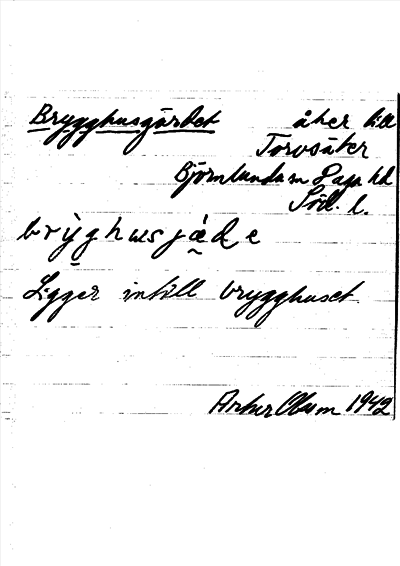 Brygghusgärdet åker till
Torvsäter
Björnlunda sn Daga hd
Söd. l.
brỳghusjǽɖe
Ligger intill brygghuset.
1942